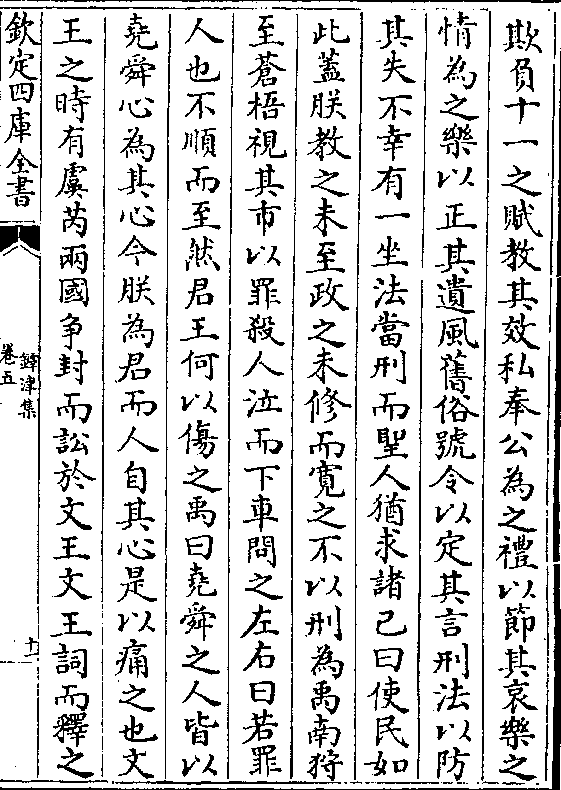 欺負十一之賦教其效私奉公為之禮以節其哀樂之
情為之樂以正其遺風舊俗號令以定其言刑法以防
其失不幸有一坐法當刑而聖人猶求諸己曰使民如
此蓋朕教之未至政之未修而寬之不以刑為禹南狩
至蒼梧視其市以罪殺人泣而下車問之左右曰若罪
人也不順而至然君王何以傷之禹曰堯舜之人皆以
堯舜心為其心今朕為君而人自其心是以痛之也文
王之時有虞芮兩國爭封而訟於文王文王詞而釋之
欽定四庫全書
鐔津集
卷五
十一